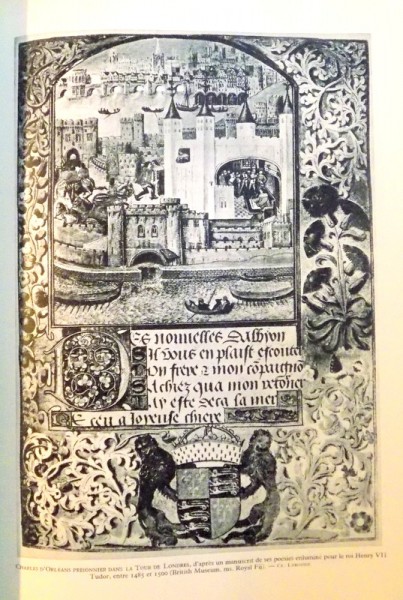 Des nouuelles dalbyon
Sil vous en plaist escouter
Mon frere & mon compaignon
Sachiez qua mon retorner
Jay este deca la mer
Receu a Joyeuse chiere
CHARLES D'ORLÉANS PRISONNIER DANS LA TOUR DE LONDRES, d'après un manuscrit de ses poésies enluminé pour le roi Henry VII
Tudor, entre 1485 et 1500 (British Museum, ms. Royal F ij). —